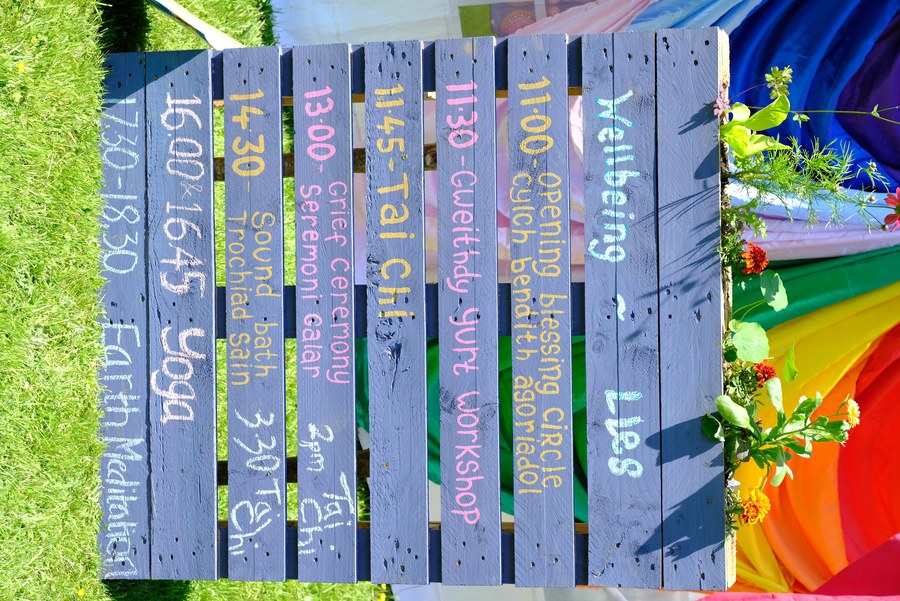 Wellbeing ~ Lles
11.00 - Opening blessing circle
Cylch bendith agoriadol
11.30 - Gweithdy yurt workshop
11.45 - Tai Chi
13.00 - Grief Ceremony
Seremoni Galar
2pm Tai Chi
14.30 - Sound bath
Trochiad Sain
3.30 Tai Chi
16.00 & 16.45 Yoga
17.30 - 18.30 Earth Meditation